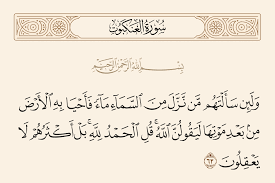 سُورَةُ العَنكَبُوتِ
بِسْمِ اللَّهِ الرَّحْمَٰنِ الرَّحِيمِ
وَلَئِن سَأَلْتَهُم مَّن نَّزَّلَ مِنَ ٱلسَّمَآءِ مَآءً فَأَحْيَا بِهِ ٱلْأَرْضَ
مِنۢ بَعْدِ مَوْتِهَا لَيَقُولُنَّ ٱللَّهُ ۚ قُلِ ٱلْحَمْدُ لِلَّهِ ۚ بَلْ أَكْثَرُهُمْ لَا
يَعْقِلُونَ ٦٣